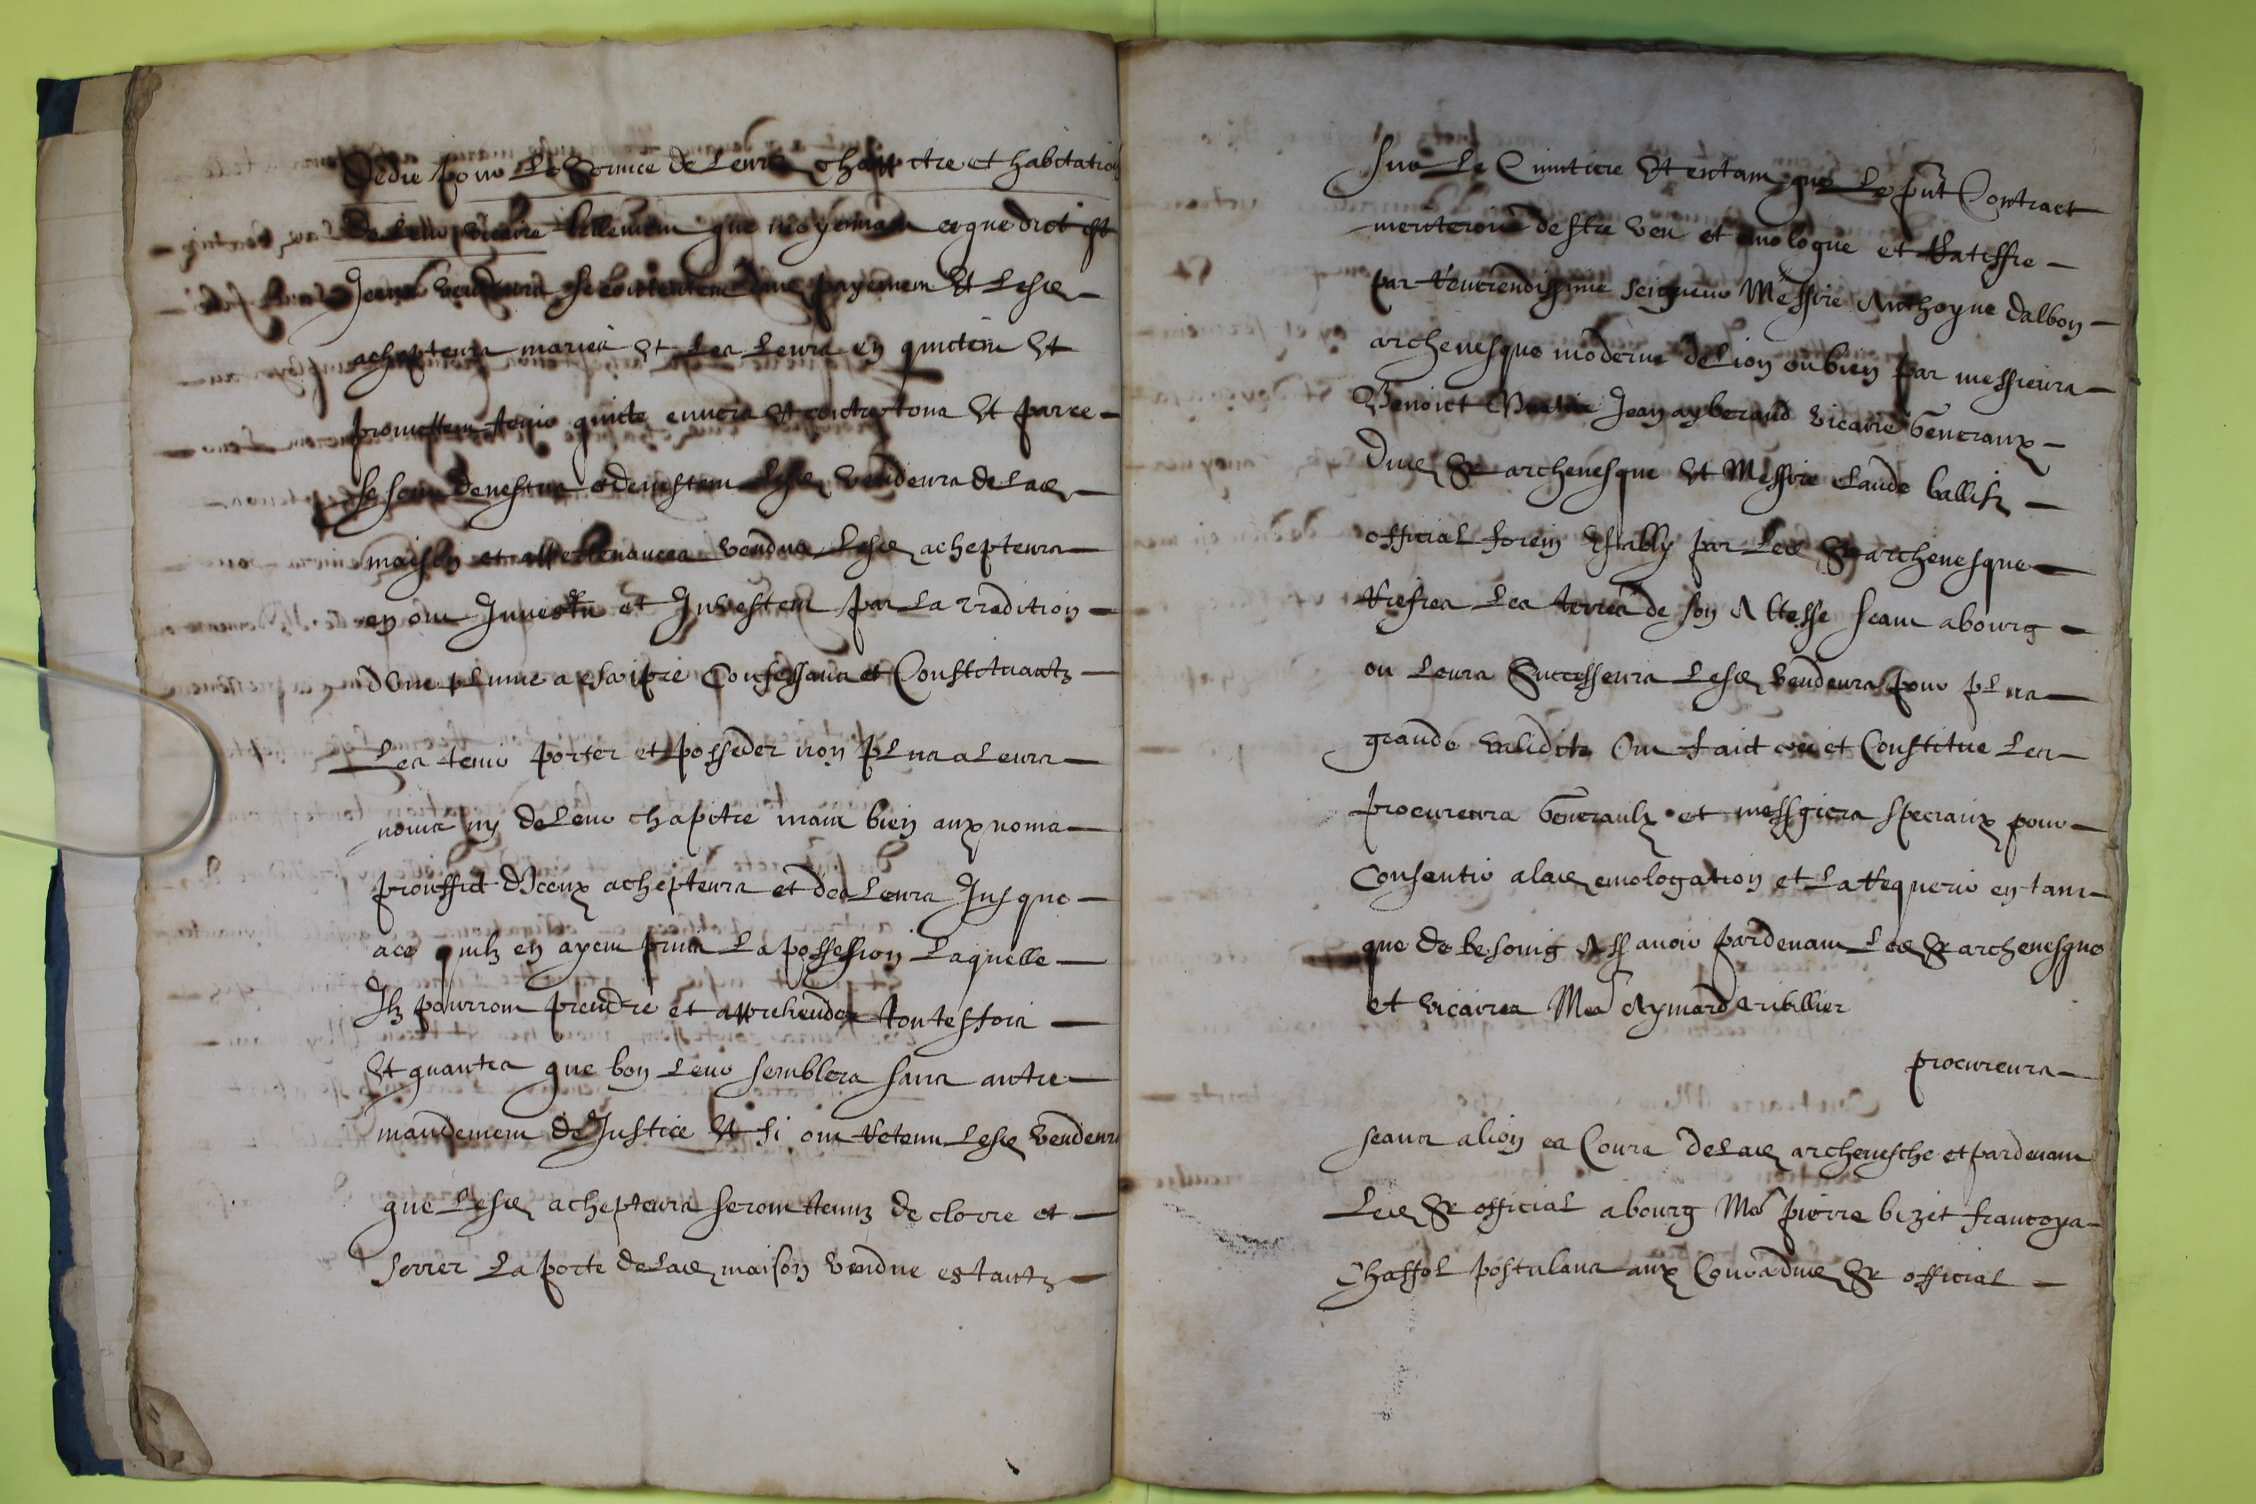 Dedie pour le service de leurs chappitre et habitation
de leur vicaire tellement que moyennant ce que dict est
Iceux vendeurs se contentent dud payement Et lesd
achepteurs mariés et les leurs en quictent Et
promettent tenir quicte envers et contre tous Et par ce
se sont devestus et devestent lesd vendeurs de lad
maison et appertenances vendus lesd achepteurs
en ont Investu et Investent par la tradition
d'une plume a escripre Confessans et Constituantz
Les tenir porter et posseder non plus a leurs
noms ny de leur chapitre mais bien aux noms
prouffict d'Iceux achepteurs et des leurs Jusque
a ce quilz en ayent prins la possession laquelle
Ilz pourront prendre et apprehender toutesfois
Et quantes que bon leur semblera sans autre
mandement de Justice Et si ont retenu lesd vendeurs
que lesd achepteurs seront tenuz de clorre et
serrer la porte de lad maison vendue estantz
sur le Cimitiere Et entant que le pnt Contract
meriteroit destre veu et emologue et Ratiffie
par Reverendissime seigneur Messire Anthoyne dalbon
archevesque moderne de Lion ou bien par messieurs
Benoict Jean ayberaud vicaire generaux
dud Sr archevesque Et Messire Claude ballifz
official forein estably par led Sr archevesque
riesres les terres de son Altesse seant a bourg
ou leurs Successeurs lesd vendeurs pour plus
grande validite Ont faict cree et Constitue les
procureurs generaulx et messagiers speciaux pour
Consentir a lad emologation et la requerir entant
que de besoing Assavoir pardevant led Sr archevesque
et vicaires Mes Aymard Cribllier
procureurs
seans a lion es Cours de lad archevesche et pardevant
led Sr official a bourg Mes pierre bizet francoys
Chassol postulans aux Cours dud Sr official